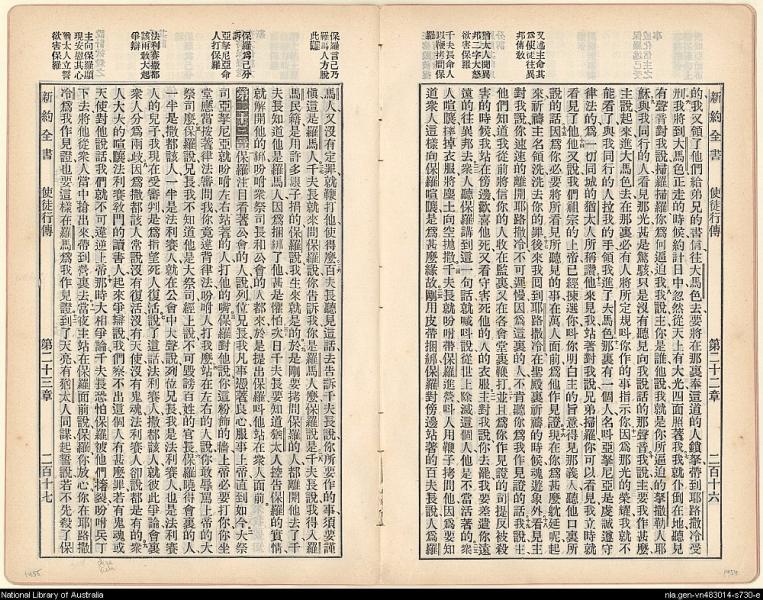 新約全書 使徒行傳 第二十二章 二百十六
的我又領了他們給弟兄的書信往大馬色去要將在那裏奉這道的人鎖拏帶到耶路撒冷受
刑我將到大馬色正走的時候約計日中忽然從天上有大光四面照著我我就仆倒在地聽見
有聲音對我說掃羅掃羅你爲何逼迫我我說主你是誰他說我就是你所逼迫的拏撒勒人耶
穌與我同行的人看見那光甚是驚駭只是沒有聽見向我說話的那聲音我說主要我作甚麽
主說起來進大馬色去在那裏必有人將所定規叫你作的事指示你因爲那光的榮耀我就不
能看了與我同行的人拉我的手領我進了大馬色那裏有一個人名叫亞拏尼亞是虔誠遵守
律法的爲一切同城的猶太人所稱讚他來見我站著對我說兄弟掃羅你可以看見我立時就
看見了他他又說我們祖宗的上帝已經揀選你叫你明白主的旨意得見那義人聽他口裏所
說的話因爲你必要將所看見所聽見的事在萬人面前爲他作見證現在你爲甚麽就延呢起
來祈禱主名領洗洗去你的罪後來我回到耶路撒冷在聖殿裏祈禱的時候魂遊象外看見主
對我說你速速的離開耶路撒冷不可遲慢因爲這裏的人不肯聽你爲我作見證的話我說主
他們知道我從前將信你的人收在監裏又在各會堂裏鞭打並且爲你作見證的司提反被殺
害的時候我站在傍邊歡喜他死又看守害死他的人的衣服主對我說你去罷我要差遣你遠
遠的往異邦去衆人聽保羅講到這一句話就喊叫說從世上除滅這個人他是不當活著的衆
人喧嚷摔掉衣服將塵土向空拋撒千夫長就吩咐帶保羅進營叫人用鞭子拷問他因爲要知
道衆人這樣向保羅喧嚷是爲甚麽緣故剛用皮帶捆綁保羅對傍邊站著的百夫長說人爲羅
馬人又沒有定罪就鞭打他使得麽百夫長聽見這話去告訴千夫長說你所要作的事須要謹
愼這是羅馬人千夫長就來問保羅說你告訴我你是羅馬人麽保羅說是千夫長說我得入羅
馬民籍是用許多銀子捐的保羅說我生來就是的於是剛要拷問保羅的人都離開他去了千
夫長知道他是羅馬人因爲捆綁了他甚是懼怕次日千夫長要知道猶太人控告保羅的實情
就解開他的綁吩咐衆祭司長和公會的人都來於是提出保羅叫他站在衆人面前
第二十三章 保羅注目看著公會的人說列位兄長我凡事憑著良心服事上帝直到如今大祭
司亞拏尼亞就吩咐左右站著的人打他的嘴保羅對他說你這粉飾的牆上帝必要打你你坐
堂應當按著律法審問我你竟違背律法吩咐人打我麽站在左右的人說你敢辱罵上帝的大
祭司麽保羅說兄長我不知道他是大祭司經上說不可毀謗百姓的官長保羅曉得會裏的人
一半是撒都該人一半是法利賽人就在公會中大聲說列位兄長我是法利賽人也是法利賽
人的兒子我現在受審判是爲指望死人復活說了這話法利賽人撒都該人就彼此爭論會裏
的人大大的喧嚷法利賽敎門的讀書人起來爭辯說我們察不出這個人有甚麽罪若有鬼魂或
天使對他說話我們就不可違逆上帝那時大相爭論千夫長恐怕保羅被他們撦裂吩咐兵丁
下去將他從衆人當中搶出來帶到營裏去當夜主站在保羅面前說保羅你放心你在耶路撒
冷爲我作見證也要這樣在羅馬爲我作見證到了天亮有猶太人同謀起誓說若不先殺了保
新約全書 使徒行傳 第二十三章 二百十七
National Library of Australia
nla.gen-vn483014-s730-e